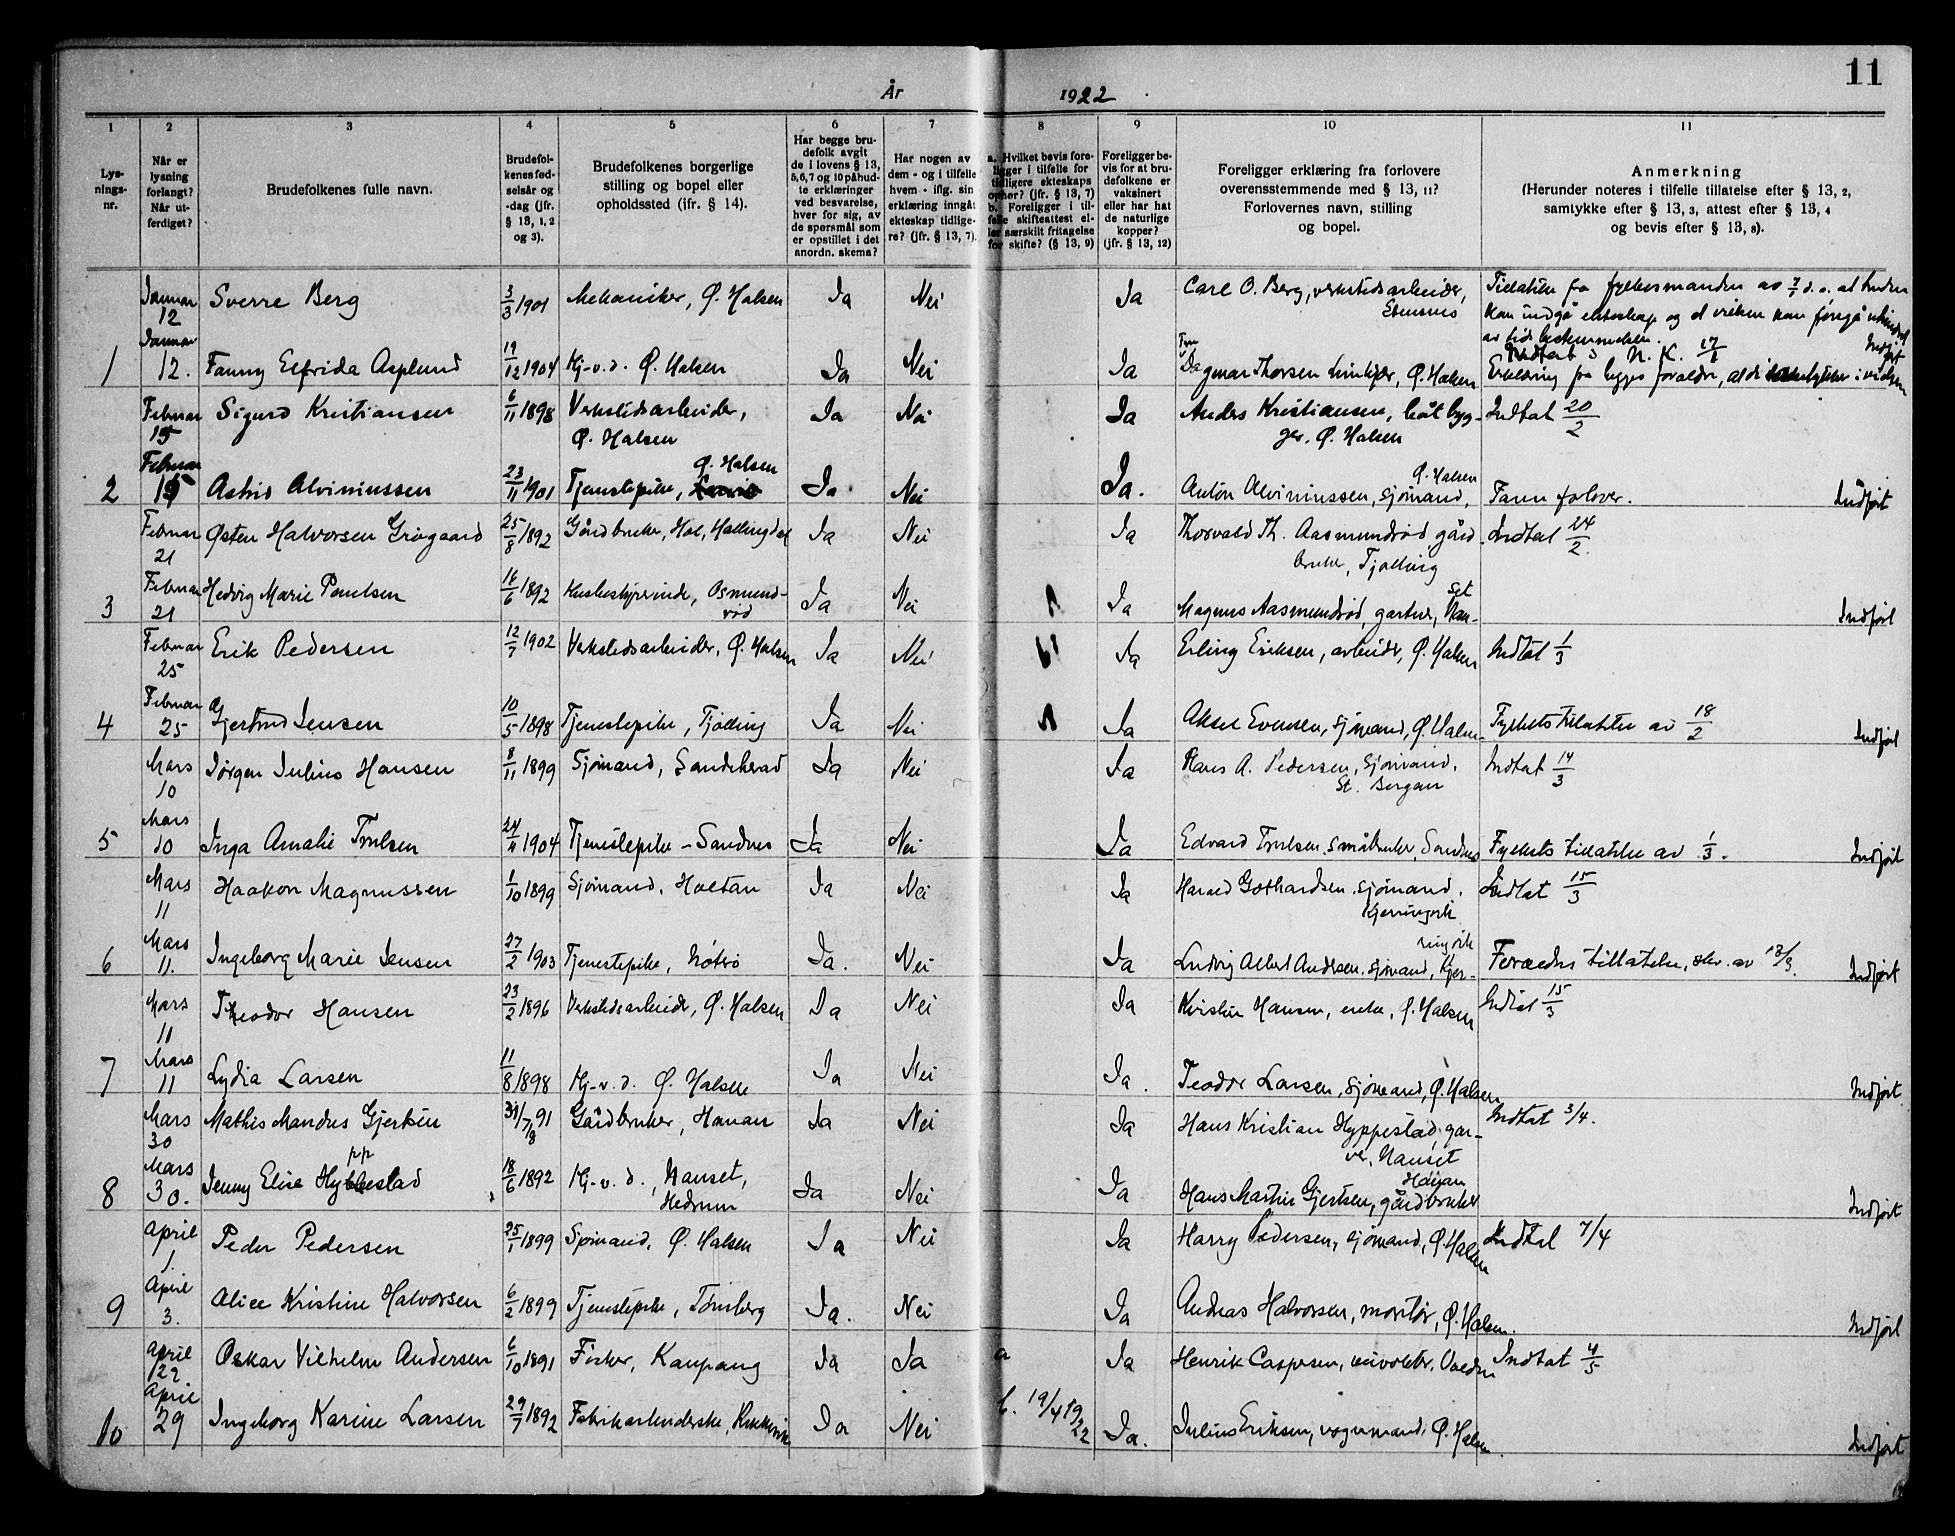 11
År 1922
1 2 3 4 5 6 7 8 9 10 11
Lys-
nings-
nr.
Når er
lysning
forlangt?
Når ut-
ferdiget?
Brudefolkenes fulle navn.
Brudefol-
kenes fød-
selsår og
-dag (jfr.
§ 13, 1, 2
og 3).
Brudefolkenes borgerlige
stilling og bopel eller
opholdssted (jfr. § 14).
Har begge bru-
defolk avgit
de i lovens § 13,
5,6,7 og 10 påbud-
te erklæringer
ved besvarelse,
hver for sig, av
de spørsmål som
er opstillet i det
anordn. skema?
Har nogen av
dem - og i tilfelle
hvem - iflg. sin
erklæring inngåt
ekteskap tidlige-
re? (jfr. § 13, 7).
a. Hvilket bevis fore-
ligger i tilfelle for
tidligere ekteskaps
ophør? (jfr. § 13, 7)
b. Foreligger i til-
felle skifteattest el-
ler særskilt fritagelse
for skifte? (§ 13, 9)
Foreligger be-
vis for at bru-
defolkene er
vaksinert
eller har hat
de naturlige
kopper?
(jfr. § 13, 12)
Foreligger erklæring fra forlovere
overensstemmende med § 13, 11?
Forlovernes navn, stilling
og bopel.
Anmerkning
(Herunder noteres i tilfelle tillatelse efter § 13, 2,
samtykke efter § 13, 3, attest efter § 13, 4
og bevis efter § 13, 8).
Januar 12 Sverre Berg 3/3 1901 Mekaniker, Ø. Halsen Ja Nei Ja Carl O. Berg, verkstedsarbeider, Tillatelse fra fylkesmanden av 7/1 d. a. at bruden
kan indgå ekteskap og at vielsen kan foregå
av tidsbestemmelsen.
1 Januar 12. Fanny Elfrida Asplund 19/12 1904 Hj.v.d. Ø. Halsen Ja Nei Ja Dagmar Thorsen Ø. Halsen Erklæring fra begge forældre, at de samtykker i vielsen Indført
Indtat N. K. 17/1
Februar 15 Sigurd Kristiansen 6/11 1898 Verkstedsarbeider, Ø. Halsen Ja Nei Ja Anders Kristiansen, båtbyg-
ger. Ø. Halsen Indtat 20/2
2 Februar 15 Astrid Alviniussen 23/11 1901 Tjenestepike, Ø. Halsen Ja Nei Ja. Anton Alviniussen, sjømand, Ø. Halsen Indført
Februar 21 Østen Halvorsen Grøgaard 25/8 1892 Gårdbruker, Hol, Hallingdal Ja Nei Ja Thorvald Th. Aasmundrød, gård-
bruker, Tjølling Indtat 24/2.
3 Februar 21 Hedvig Marie Paulsen 16/6 1892 Husbestyrerinde, Osmund-
rød Ja Nei Ja Magnus Aasmundrød, gartner, Nan-
set Indført
Februar 25 Erik Pedersen 12/7 1902 Verkstedsarbeider, Ø. Halsen Ja Nei Ja Erling Eriksen, arbeider, Ø. Halsen Indtat 1/3
4 Februar 25 Gjertrud Jensen 10/5 1898 Tjenestepike, Tjølling Ja Nei Ja Aksel Evensen, sjømand, Ø. Halsen Fylkets tillatelse av 18/2 Indført
Mars 10 Jørgen Julius Hansen 8/11 1899 Sjømand, Sandeherad Ja Nei Ja Hans A. Pedersen, sjømand,
St. Bergan Indtat 14/3
5 Mars 10 Inga Amalie Trulsen 24/11 1904 Tjenestepike - Sandnes Ja Nei Ja Edvard Trulsen, småbruker, Sandnes Fylkets tillatelse av 1/3. Indført
Mars 11 Haakon Magnussen 1/10 1899 Sjømand, Holtan Ja Nei Ja Harald Gothardsen, sjømand,
Kjerringvik Indtat 15/3
6 Mars 11. Ingeborg Marie Jensen 27/2 1903 Tjenestepike, Nøtrø Ja. Nei Ja Ludvig Albert Andersen, sjømand, Kjer-
ringvik Forældres tillatelse, skr. av 13/3. Indført
Mars 11 Theodor Hansen 23/2 1896 Verkstedsarbeider, Ø. Halsen Ja Nei Ja Kristine Hansen, enke, Ø. Halsen Indtat 15/3
7 Mars 11 Lydia Larsen 11/8 1898 Hj.-v. d. Ø. Halsen Ja Nei Ja. Teodor Larsen, sjømand, Ø. Halsen Indført
Mars 30 Mathis Mandus Gjertsen 91 Gårdbruker, Havan Ja Nei Ja Hans Kristian Hyppestad, gar-
ver, Nanset Indtat 3/4.
8 Mars 30. Jenny Elise Hyppestad 18/6 1892 Hj.-v. d., Nanset,
Hedrum Ja Nei Ja Hans Martin Gjertsen, gårdbruker Indført
April 1. Peder Pedersen 25/1 1899 Sjømand, Ø. Halsen Ja Nei Ja Harry Pedersen, sjømand, Ø. Halsen Indtat 7/4
9 April 3. Alice Kristine Halvorsen 6/2 1899 Tjenestepike, Tønsberg Ja. Nei Ja Andreas Halvorsen, montør, Ø. Halsen. Indført
April 22 Oskar Vilhelm Andersen 6/10 1891 Fisker, Kaupang Ja Ja a Ja Henrik Caspersen, Indtat 4/5
10 April 29 Ingeborg Karine Larsen 29/7 1892 Fabrikarbeiderske, Ja Nei b. 19/4 1922 Ja. Julius Eriksen, vognmand, Ø. Halsen. Indført